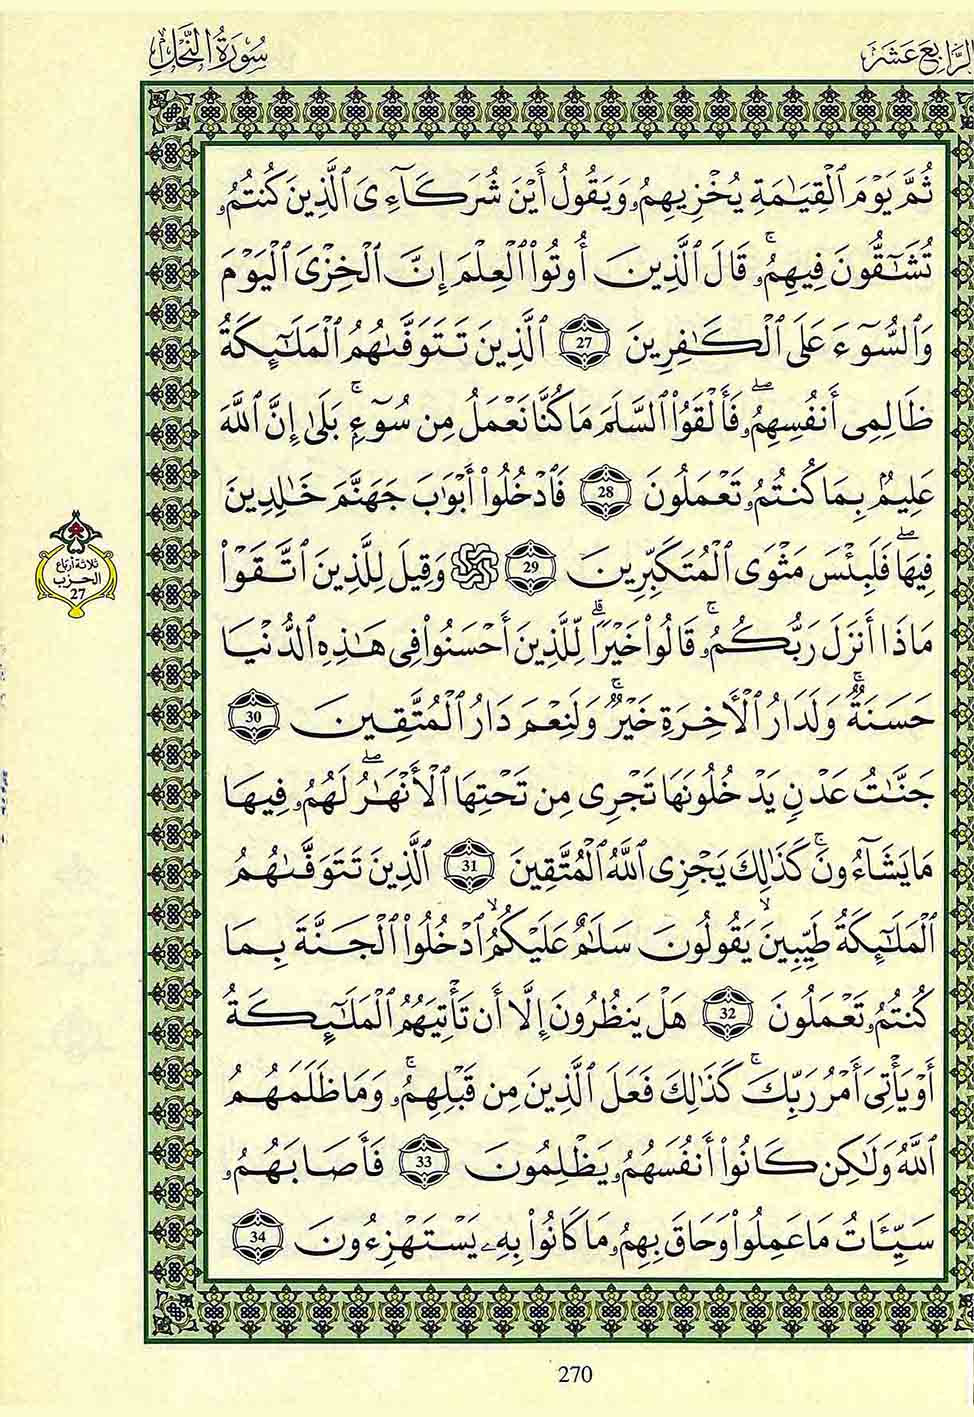 الرَّابِعَ عَشَرَ
سُورَةُ النَّحْلِ
ثُمَّ يَوْمَ ٱلْقِيَٰمَةِ يُخْزِيهِمُۥ وَيَقُولُ أَيْنَ شُرَكَآءِىَ ٱلَّذِينَ كُنتُمُۥ
تُشَٰٓقُّونَ فِيهِمُۥۚ قَالَ ٱلَّذِينَ أُوتُوا۟ ٱلْعِلْمَ إِنَّ ٱلْخِزْىَ ٱلْيَوْمَ
وَٱلسُّوٓءَ عَلَى ٱلْكَٰفِرِينَ 27 ٱلَّذِينَ تَتَوَفَّىٰهُمُ ٱلْمَلَٰٓئِكَةُ
ظَالِمِى أَنفُسِهِمُۥۖ فَأَلْقَوُا۟ ٱلسَّلَمَ مَا كُنَّا نَعْمَلُ مِن سُوٓءٍۚ بَلَىٰ إِنَّ ٱللَّهَ
عَلِيمٌۢ بِمَا كُنتُمُۥ تَعْمَلُونَ 28 فَٱدْخُلُوا۟ أَبْوَٰبَ جَهَنَّمَ خَٰلِدِينَ
فِيهَاۖ فَلَبِئْسَ مَثْوَى ٱلْمُتَكَبِّرِينَ 29 وَقِيلَ لِلَّذِينَ ٱتَّقَوْا۟
ثلاثة أرباع
الحزب
27
مَاذَا أَنزَلَ رَبُّكُمُۥۚ قَالُوا۟ خَيْرًاۗ لِّلَّذِينَ أَحْسَنُوا۟ فِى هَٰذِهِ ٱلدُّنْيَا
حَسَنَةٌۚ وَلَدَارُ ٱلْأَخِرَةِ خَيْرٌۚ وَلَنِعْمَ دَارُ ٱلْمُتَّقِينَ 30
جَنَّٰتُ عَدْنٍ يَدْخُلُونَهَا تَجْرِى مِن تَحْتِهَا ٱلْأَنْهَٰرُۖ لَهُمُۥ فِيهَا
مَا يَشَآءُونَۚ كَذَٰلِكَ يَجْزِى ٱللَّهُ ٱلْمُتَّقِينَ 31 ٱلَّذِينَ تَتَوَفَّىٰهُمُ
ٱلْمَلَٰٓئِكَةُ طَيِّبِينَۙ يَقُولُونَ سَلَٰمٌ عَلَيْكُمُۙ ٱدْخُلُوا۟ ٱلْجَنَّةَ بِمَا
كُنتُمُۥ تَعْمَلُونَ 32 هَلْ يَنظُرُونَ إِلَّا أَن تَأْتِيَهُمُ ٱلْمَلَٰٓئِكَةُ
أَوْ يَأْتِىَ أَمْرُ رَبِّكَۚ كَذَٰلِكَ فَعَلَ ٱلَّذِينَ مِن قَبْلِهِمُۥۚ وَمَا ظَلَمَهُمُ
ٱللَّهُ وَلَٰكِن كَانُوا۟ أَنفُسَهُمُۥ يَظْلِمُونَ 33 فَأَصَابَهُمُۥ
سَيِّـَٔاتُ مَا عَمِلُوا۟ وَحَاقَ بِهِمُۥ مَا كَانُوا۟ بِهِۦ يَسْتَهْزِءُونَ 34
270